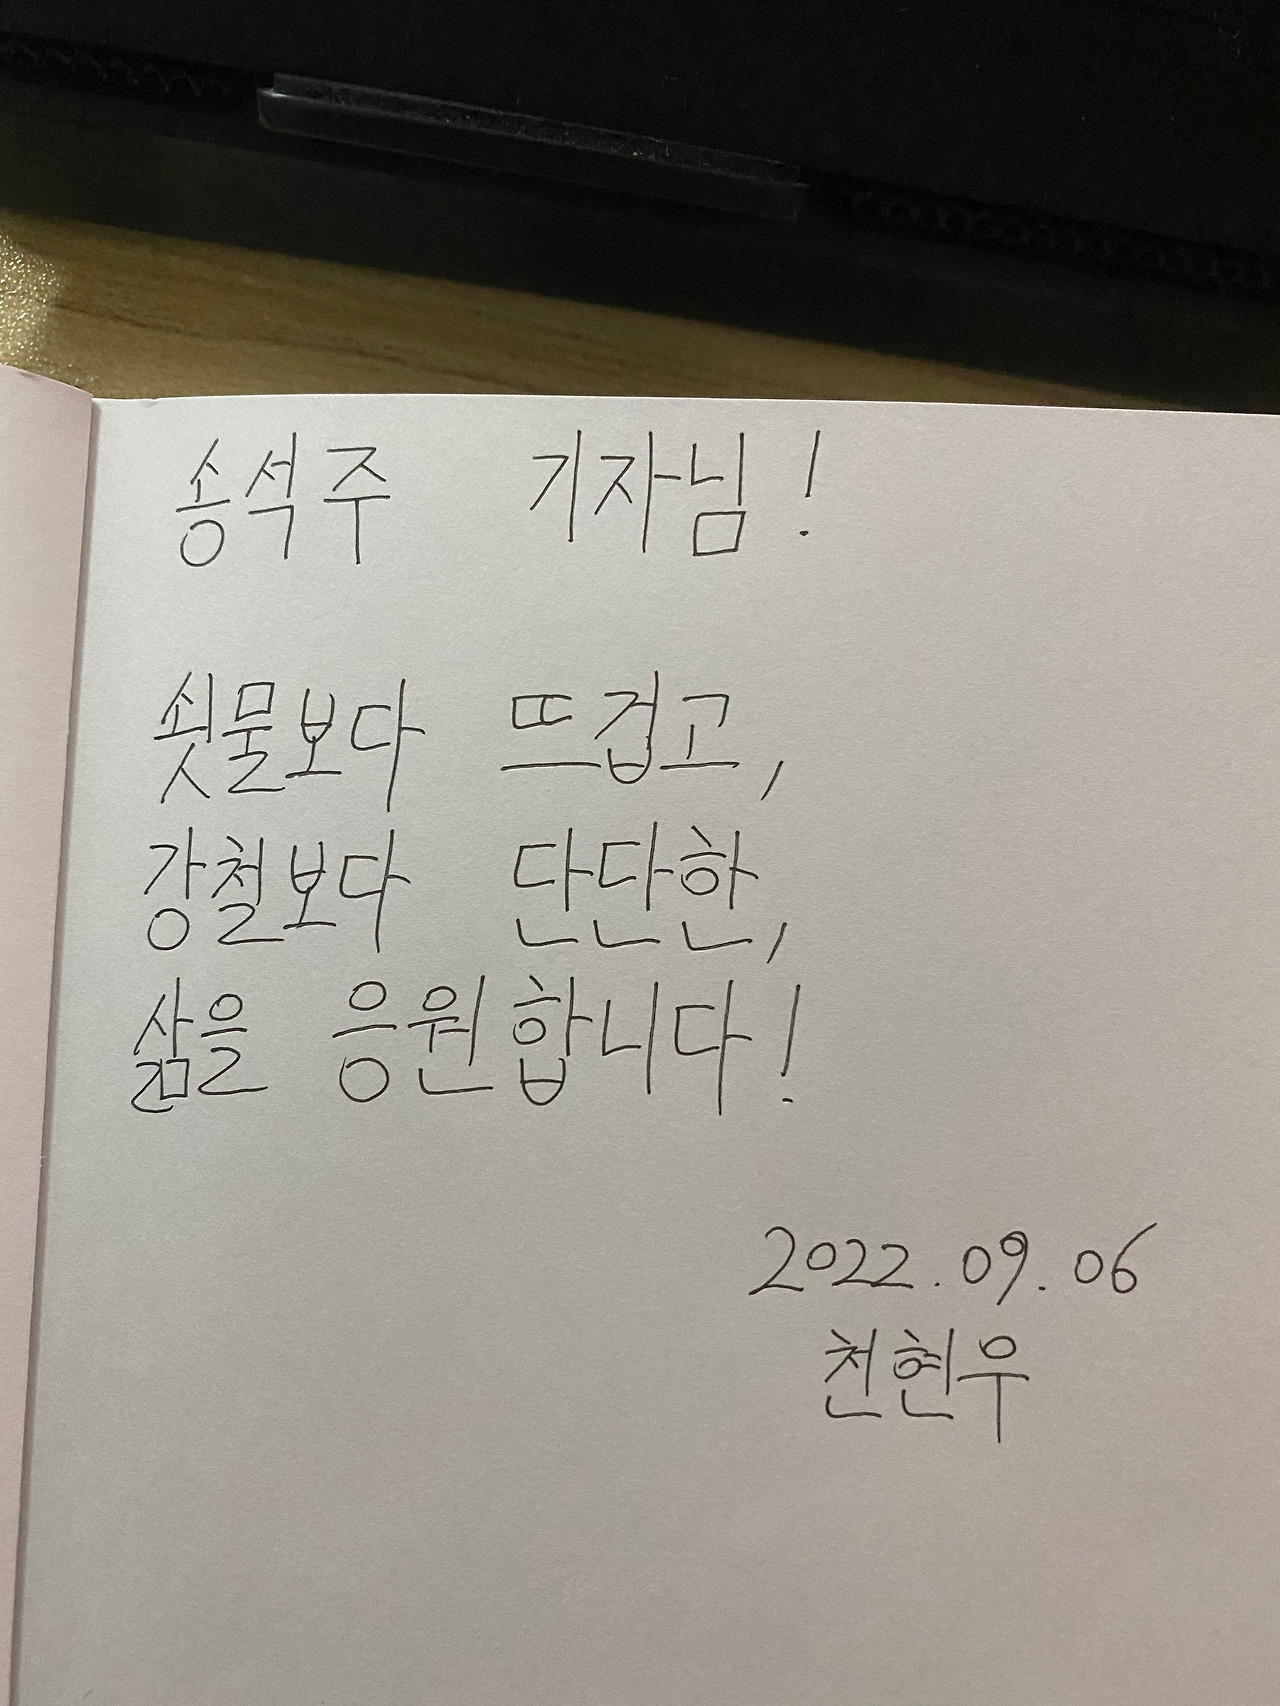 송석주 기자님!
쇳물보다 뜨겁고,
강철보다 단단한,
삶을 응원합니다!
2022.09.06
천현우